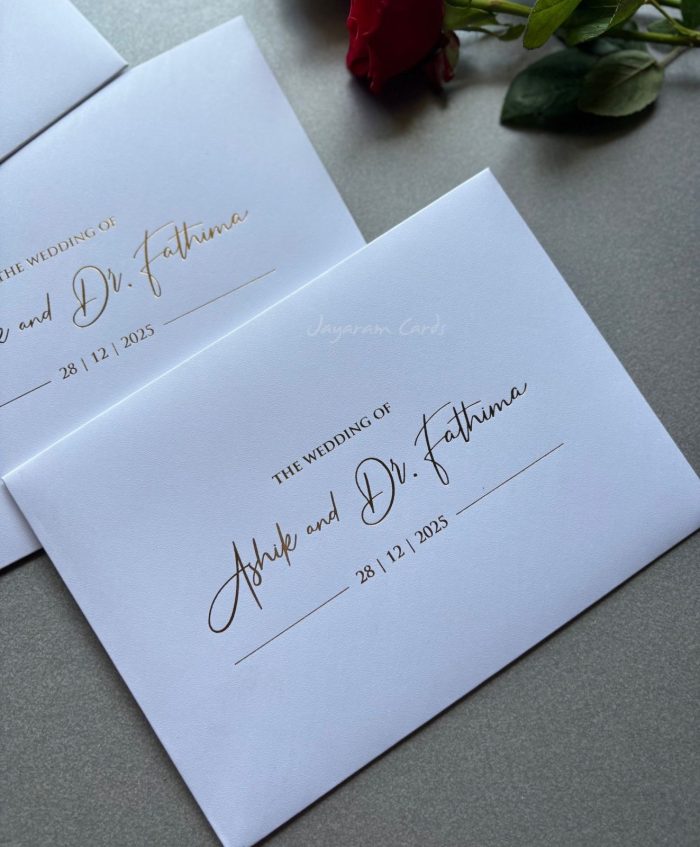 THE WEDDING OF
and Dr. Fathima
28 | 12 | 2025
Jayaram Cards
THE WEDDING OF
Ashik and Dr. Fathima
28 | 12 | 2025